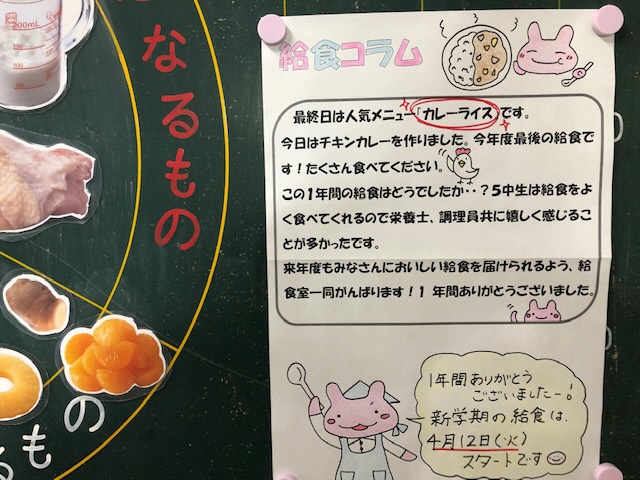 200mL
なるもの
るもの
給食コラム
最終日は人気メニュー「カレーライス」です。
今日はチキンカレーを作りました。今年度最後の給食で
す！たくさん食べてください。
この１年間の給食はどうでしたか・・？５中生は給食をよ
く食べてくれるので栄養士、調理員共に嬉しく感じるこ
とが多かったです。
来年度もみなさんにおいしい給食を届けられるよう、給
食室一同がんばります！１年間ありがとうございました。
1年間ありがとう
ございましたー!
新学期の給食は、
4月12日(火)
スタートです